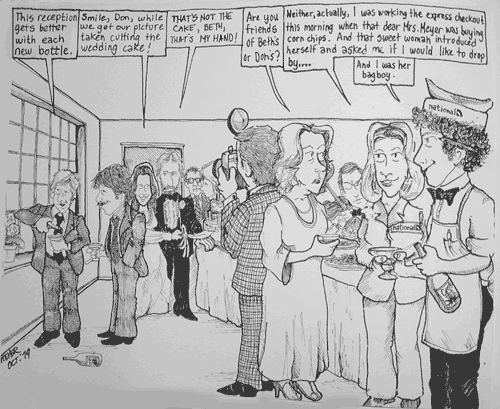 This reception
gets better
with each
new bottle.
Smile, Don, while
we get our picture
taken cutting the
wedding cake!
THAT'S NOT THE
CAKE, BETH,
THAT'S MY HAND!
Are you
friends
of Beth's
or Don's?
Neither, actually, I was working the express checkout
this morning when that dear Mrs. Meyer was buying
corn chips. And that sweet woman introduced
herself and asked me if I would like to drop
by....
And I was her
bagboy.
national
national
OCT. '79